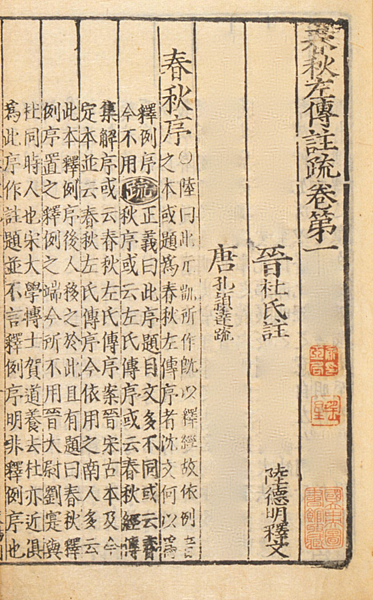 春秋左傳註疏卷第一
晉杜氏註
陸德明釋文
唐孔穎達疏
春秋序
○陸曰此元凱所作旣以釋經故依例音
之本或題爲春秋左傳序者沈文何以爲
釋例序
今不用
疏
正義曰此序題目文多不同或云春
秋序或云左氏傳序或云春秋經傳
集解序或云春秋左氏傳序案晉宋古本及今
定本並云春秋左氏傳序今依用之南人多云
此本釋例序後人移之於此且有題曰春秋釋
例序置之釋例之端今所不用晉大尉劉寔與
杜同時人也宋大學博士賀道養去杜亦近俱
爲此序作註題並不言釋例序明非釋例序也